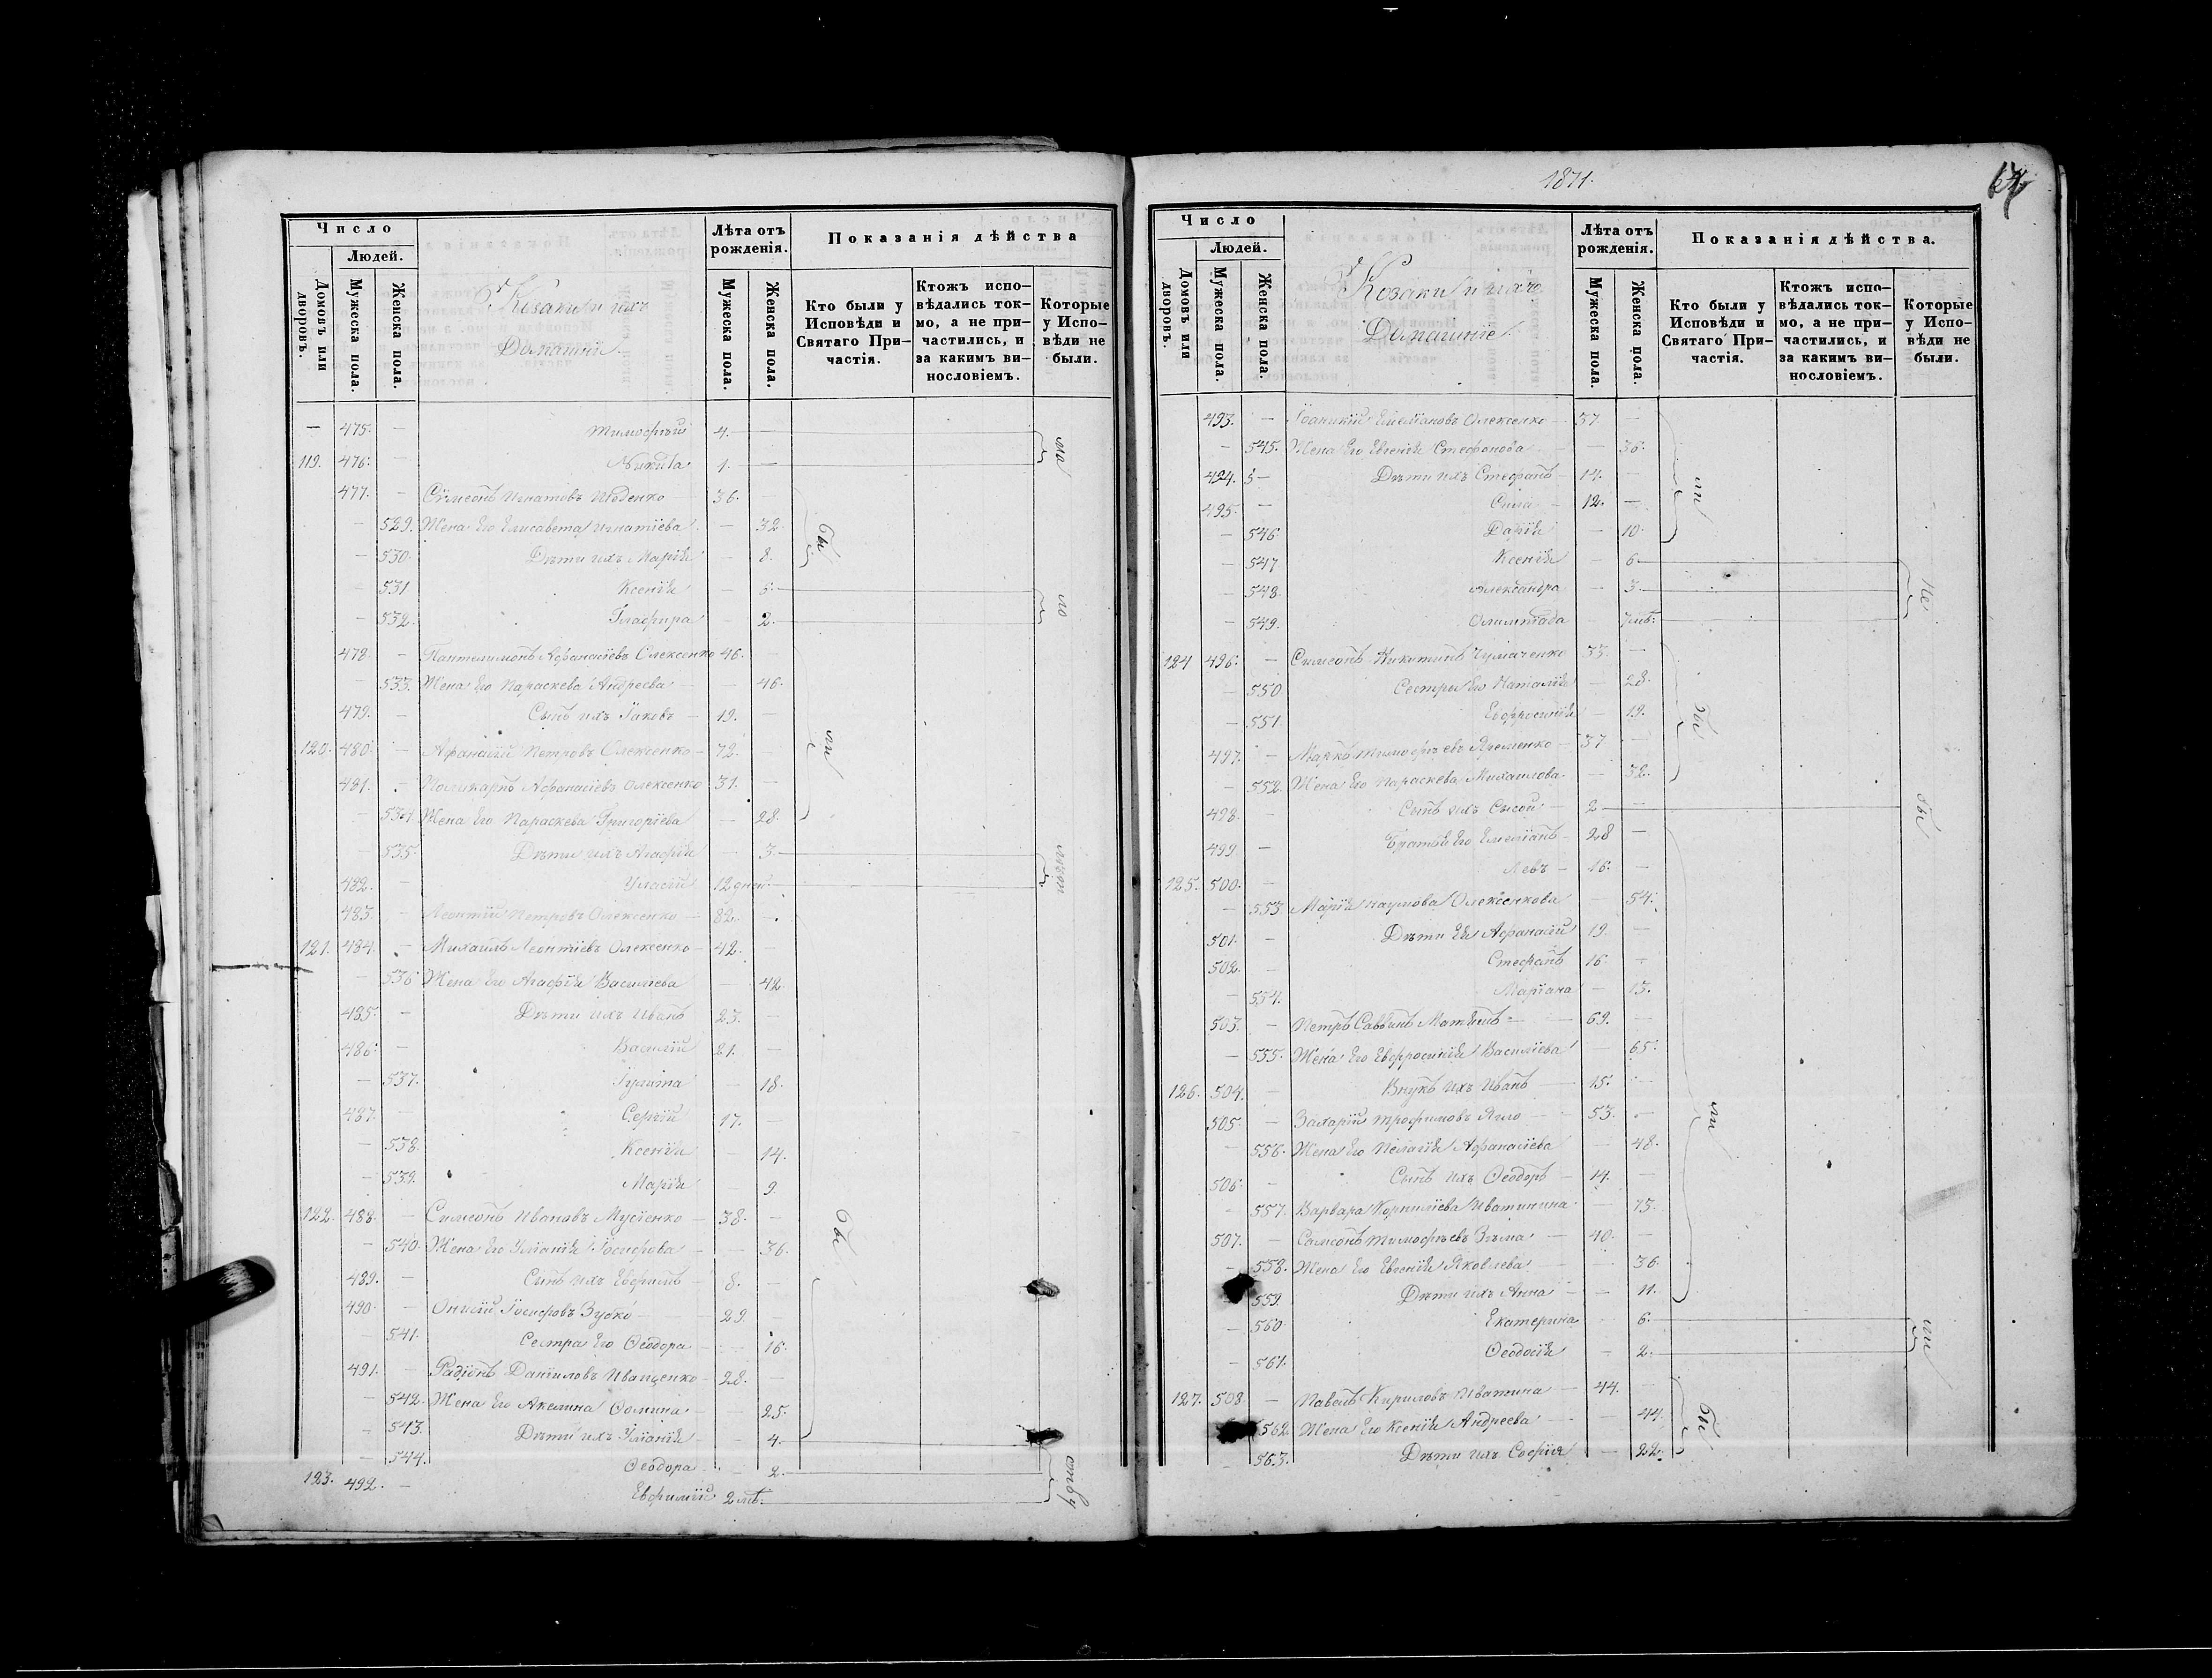 Число
Людей.
Домовъ или дворовъ.
Мужеска пола.
Женска пола.
Козаки и ихъ
Домашніе.
Лѣта отъ рожденія.
Мужеска пола.
Женска пола.
Показанія дѣйства
Кто были у Исповѣди и Святаго При-частія.
Ктожъ испо-вѣдались ток-мо, а не при-частились, и за какимъ ви-нословіемъ.
Которые у Испо-вѣди не были.
— 475. — Тимофѣй 4. —
119. 476. — Никита 1. —
477. — Сѵмеонъ Игнатовъ 36. —
— 529. Жена Его Елисавета Игнатіева — 32.
— 530. Дѣти ихъ Марія — 8.
— 531 Ксенія — 5.
— 532. Глафира — 2.
478 — Пантелимонъ Афанасіевъ Олексенко 46. —
— 533. Жена Его Параскева Андреева — 46.
479. — Сынъ ихъ Іаковъ — 19. —
120. 480. — Афанасій Петровъ Олексенко — 72. —
481. — Поликарпъ Афанасіевъ Олексенко 31. —
— 534. Жена Его Параскева Григоріева — 28.
— 535. Дѣти ихъ Агафія — 3.
482. — Уласій 12 дней.
483. — Леонтій Петровъ Олексенко — 82. —
121. 484. — Михаилъ Леонтіевъ Олексенко — 42. —
— 536 Жена Его Агафія Василіева — 42
485. — Дѣти ихъ Иванъ 23. —
486. — Василій 21. —
— 537. Іулита — 18.
487. — Сергій 17. —
— 538. Ксенія — 14.
— 539. Марія — 9.
122. 488. — Симеонъ Ивановъ Мусіенко — 38. —
— 540. Жена Его Уліанія Іосифова — 36.
489. — Сынъ ихъ Евфимъ — 8. —
490. — Онисій Іосифовъ Зубко 29. —
— 541. Сестра Его Ѳеодора — 16.
491. — Радіонъ Даніиловъ Иващенко — 28. —
— 542. Жена Его Акелина Ѳомина — 25.
— 543. Дѣти ихъ Уліанія — 4.
— 544. Ѳеодора — 2.
123. 492. — Евфимій 2 мѣ.
бы
ли
бы
1871.
Число
Людей.
Домовъ или дворовъ.
Мужеска пола.
Женска пола.
Козаки и ихъ
Домашніе.
Лѣта отъ рожденія.
Мужеска пола.
Женска пола.
Показанія дѣйства.
Кто были у Исповѣди и Святаго При-частія.
Ктожъ испо-вѣдались ток-мо, а не при-частились, и за какимъ ви-нословіемъ.
Которые у Испо-вѣди не были.
493. — Іоаникій Емеліановъ Олексенко — 37. —
— 545. Жена Его Евгенія Стефанова — 36.
494. — Дѣти ихъ Стефанъ — 14. —
495. — Сила — 12. —
— 546 Дарія — 10.
— 547 Ксенія — 6.
— 548. Александра — 3.
— 549. Олимпіада 7 мѣ.
124 496. — Симеонъ Никитинъ Чумаченко 33. —
— 550 Сестры Его Наталія — 28.
— 551 Евфросинія — 19.
497. — Марко Тимофѣевъ Яременко — 37 —
— 552. Жена Его Параскева Михаилова — 32.
498. — Сынъ ихъ Сысой — 2 —
499 — Братья Его Емеліанъ — 28 —
125. 500. — Левъ — 16. —
— 553 Марія Наумова Олексенкова — 54.
501. — Дѣти Ея Афанасій 19. —
502. — Стефанъ 16. —
— 554. Маріана — 15.
503. — Петръ Саввинъ — 69. —
— 555. Жена Его Евфросинія Василіева — 65.
126. 504. — Внукъ ихъ Иванъ — 15. —
505. — Захарій Трофимовъ Ягло — 53. —
— 556. Жена Его Пелагія Афанасіева — 48.
506. — Сынъ ихъ Ѳеодоръ — 14. —
— 557. Варвара Корниліева — 75.
507. — Самсонъ Тимофѣевъ — 40. —
— 558. Жена Его Евгенія Яковлева — 36.
559. Дѣти ихъ Анна — 11.
— 560 Екатерина 6.
— 561. Ѳеодосія — 2.
127. 508 — Павелъ Кириловъ — 44. —
562. Жена Его Ксенія Андреева — 44.
563. Дѣти ихъ Софія — 22.
ли
бы
ли
Бы
Не
бы
ли